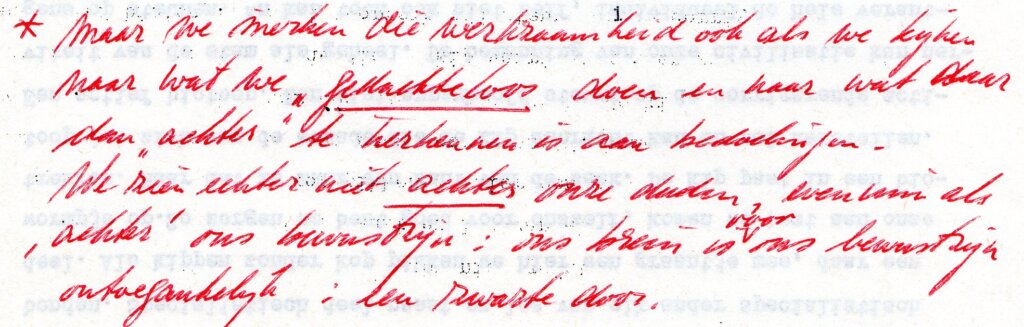 * Maar we merken die werkzaamheid ook als we kijken
naar wat we „gedachteloos doen en naar wat daar
dan „achter" te herkennen is aan bedoelingen.
We zien echter niet achter onze daden, evenmin als
„achter" ons bewustzijn: ons brein is voor ons bewustzijn
ontoegankelijk: een zwarte doos.